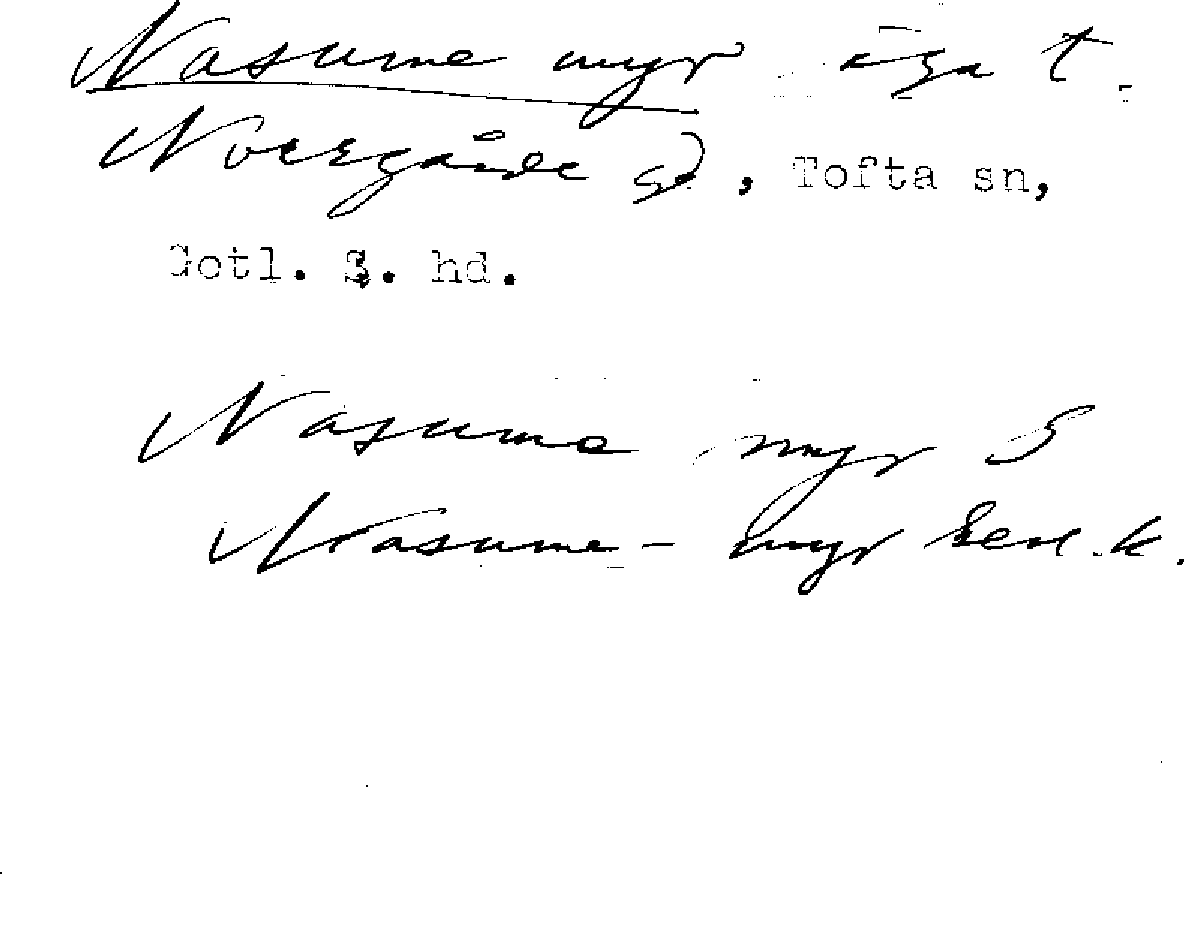 Nasume myr äga t.
Norrgårde gd, Tofta sn,
Gotl. S. hd.
Nasume myr S
Nasume-myr Gen.k.